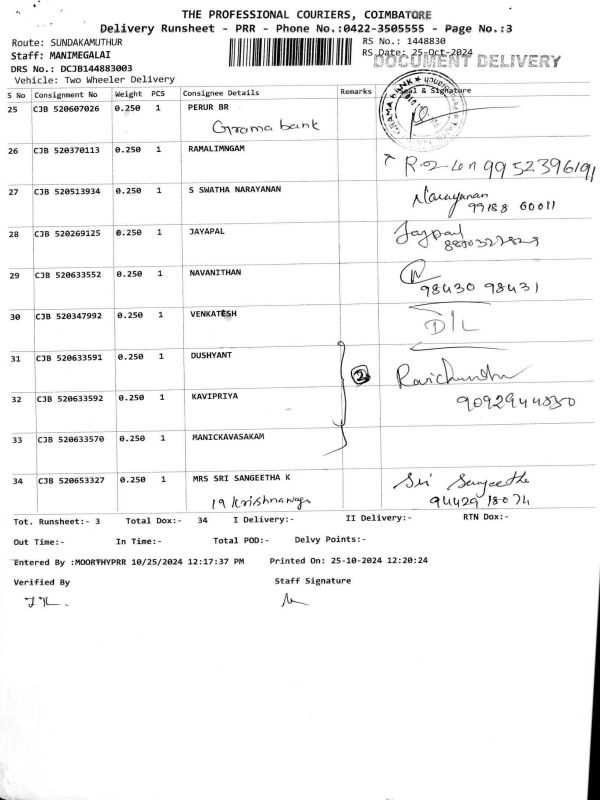 THE PROFESSIONAL COURIERS, COIMBATORE
Delivery Runsheet - PRR - Phone No.:0422-3505555 - Page No.:3
Route: SUNDAKAMUTHUR RS No.: 1448830
Staff: MANIMEGALAI RS Date: 25-Oct-2024
DOCUMENT DELIVERY
DRS No.: DCJB144883003
Vehicle: Two Wheeler Delivery
S No Consignment No Weight PCS Consignee Details Remarks Seal & Signature
25 CJB 520607026 0.250 1 PERUR BR
Grama bank
26 CJB 520370113 0.250 1 RAMALIMNGAM
9952396191
27 CJB 520513934 0.250 1 S SWATHA NARAYANAN Narayanan
99188 60011
28 CJB 520269125 0.250 1 JAYAPAL Jaypaul
29 CJB 520633552 0.250 1 NAVANITHAN
98430 98431
30 CJB 520347992 0.250 1 VENKATESH D/L
31 CJB 520633591 0.250 1 DUSHYANT 2 Ravichandra
32 CJB 520633592 0.250 1 KAVIPRIYA 9092944830
33 CJB 520633570 0.250 1 MANICKAVASAKAM
34 CJB 520653327 0.250 1 MRS SRI SANGEETHA K Sri Sangeetha
19 Krishna nagar 94429 18074
Tot. Runsheet:- 3 Total Dox:- 34 I Delivery:- II Delivery:- RTN Dox:-
Out Time:- In Time:- Total POD:- Delvy Points:-
Entered By :MOORTHYPRR 10/25/2024 12:17:37 PM Printed On: 25-10-2024 12:20:24
Verified By Staff Signature